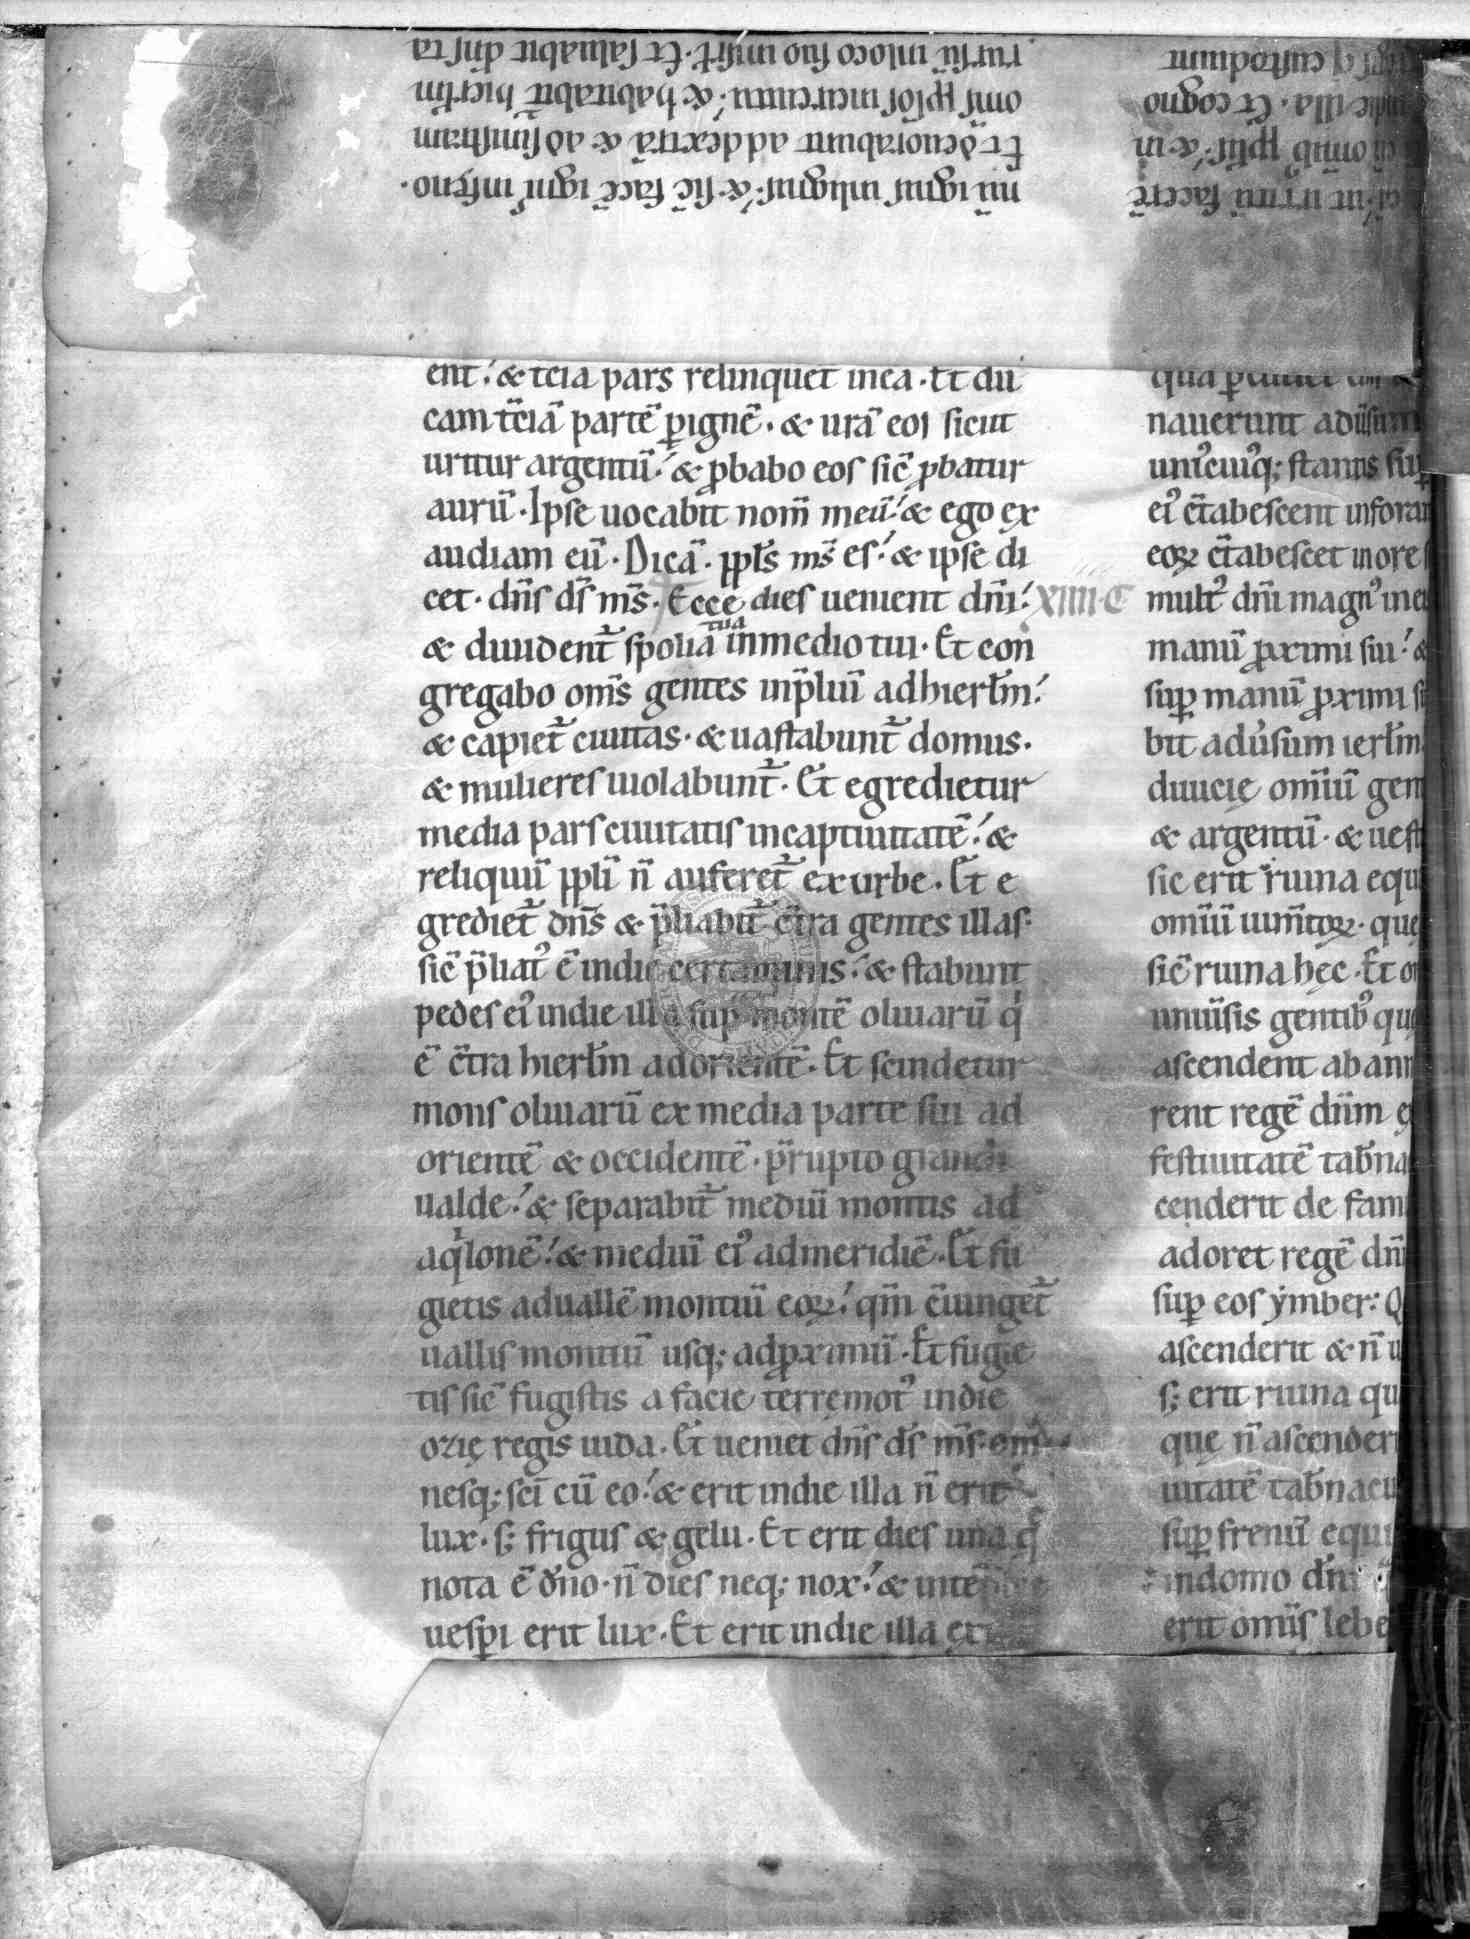 nũ ignis inlignis; & sic̃ facẽ ignis infẹno.
Et deuorabunt addextrã & ad sinistram
om̃s ppl̃os incircuitu; & habitabit hierl̃m
rursũ inloco suo inierl̃. Et saluabit dñs ta
ent; & tc̃ia pars relinquet inea. Et du
cam tc̃iã partẽ p ignẽ. & urã eos sicut
uritur argentũ; & p̃babo eos sic̃ p̃batur
aurũ. Ipse uocabit nom̃ meũ; & ego ex
audiam eũ. Dicã. ppl̃s ms̃ es; & ipse di
cet. dñs ds̃ ms̃. Ecce dies uenient dñi; XIIII C
& diuident᷑ spolia tua inmedio tui. Et con
gregabo oms̃ gentes inp̃liũ adhierl̃m;
& capiet᷑ ciuitas. & uastabunt᷑ domus.
& mulieres uiolabunt᷑. Et egredietur
media pars ciuitatis incaptiuitatẽ; &
reliquiũ ppl̃i ñ auferet᷑ ex urbe. Et e
grediet᷑ dñs & p̃liabit᷑ c̃tra gentes illas.
sic̃ p̃liat᷒ ẽ indie certaminis; & stabunt
pedes ei᷒ indie illa sup montẽ oliuarũ q̇
ẽ c̃tra hierl̃m adorientẽ. Et scindetur
mons oliuarũ ex media parte sui ad
orientẽ & occidentẽ. p̃rupto grandi
ualde; & separabit᷑ mediũ montis ad
aq̇lonẽ; & mediũ ei᷒ admeridiẽ. Et fu
gietis aduallẽ montiũ eoꝝ; qm̃ c̃iunget᷑
uallis montiũ usq; adp̃ximũ. Et fugie
tis sic̃ fugistis a facie terrẹmot᷒ indie
ozię regis iuda. Et ueniet dñs ds̃ ms̃. om
nesq; sc̃i cũ eo; & erit indie illa ñ erit
lux. s; frigus & gelu. Et erit dies una q̃
nota ẽ dño. ñ dies neq; nox; &
uesp̃i erit lux. Et erit indie illa
nauerunt
uni᷒cui᷒q; stantis sup
ei᷒ c̃tabescent infora
eoꝝ c̃tabescet inore s
mult᷒ dñi magn᷒ ine
manũ p̃ximi sui; &
sup manũ p̃ximi
bit adũsum ierl̃m
diuicię om̃iũ gen
& argentũ. & uest
sic erit ruina equ
om̃iũ iumt̃oꝝ. quę
sic̃ ruina hęc. Et o
uniũsis gentib᷒ quę
ascendent ab ann
rent regẽ dñm
festiuitatẽ tab̃na
cenderit de fam
adoret regẽ dñ
sup eos ẏmber: Q
ascenderit & ñ u
s; erit ruina qu
quę ñ ascender
uitatẽ tab̃nacu
sup frenũ equi
indomo dñi
erit om̃is lebe